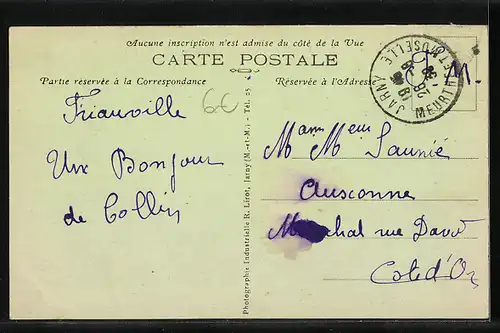 Aucune inscription n'est admise du côté de la Vue
CARTE POSTALE
Partie réservée à la Correspondance
Réservée à l'Adresse
JARNY
MEURTHE-ET-MOSELLE
F.M.
Friauville
6€
Un Bonjour
de Collin
Photographie Industrielle R. Lirot, Jarny (M.-et-M.) - Tél. 25
Mam Meur Saunié
Auxonne
Maréchal rue David
Cote d'Or